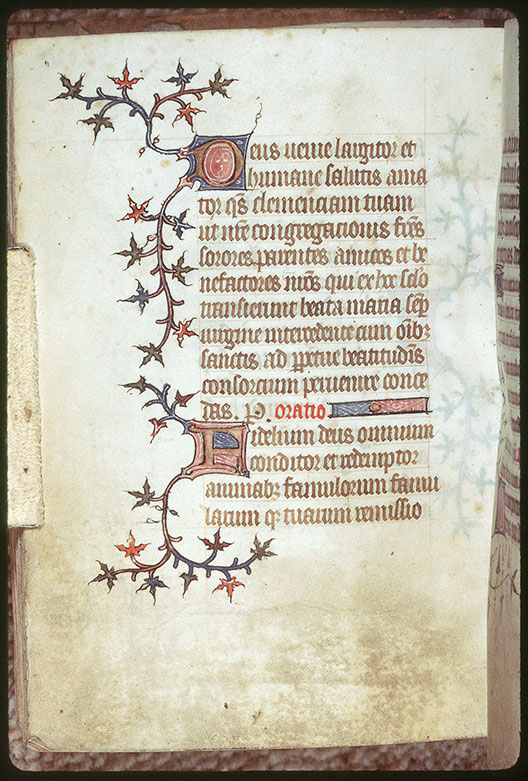 Deus uenie largitor et
humane salutis ama
tor qs clemenciam tuam
ut nre congregacionis fres
sorores parentes amicos et be
nefactores nros qui ex hoc sclo
transierunt beata maria sep
uirgine intercedente cum oibz
sanctis ad ppetue beatitudis
consorcium peruenire conce
das. P. oratio
Fidelium deus omnium
conditor et redemptor
animabz famulorum famu
larum qz tuarum remissio